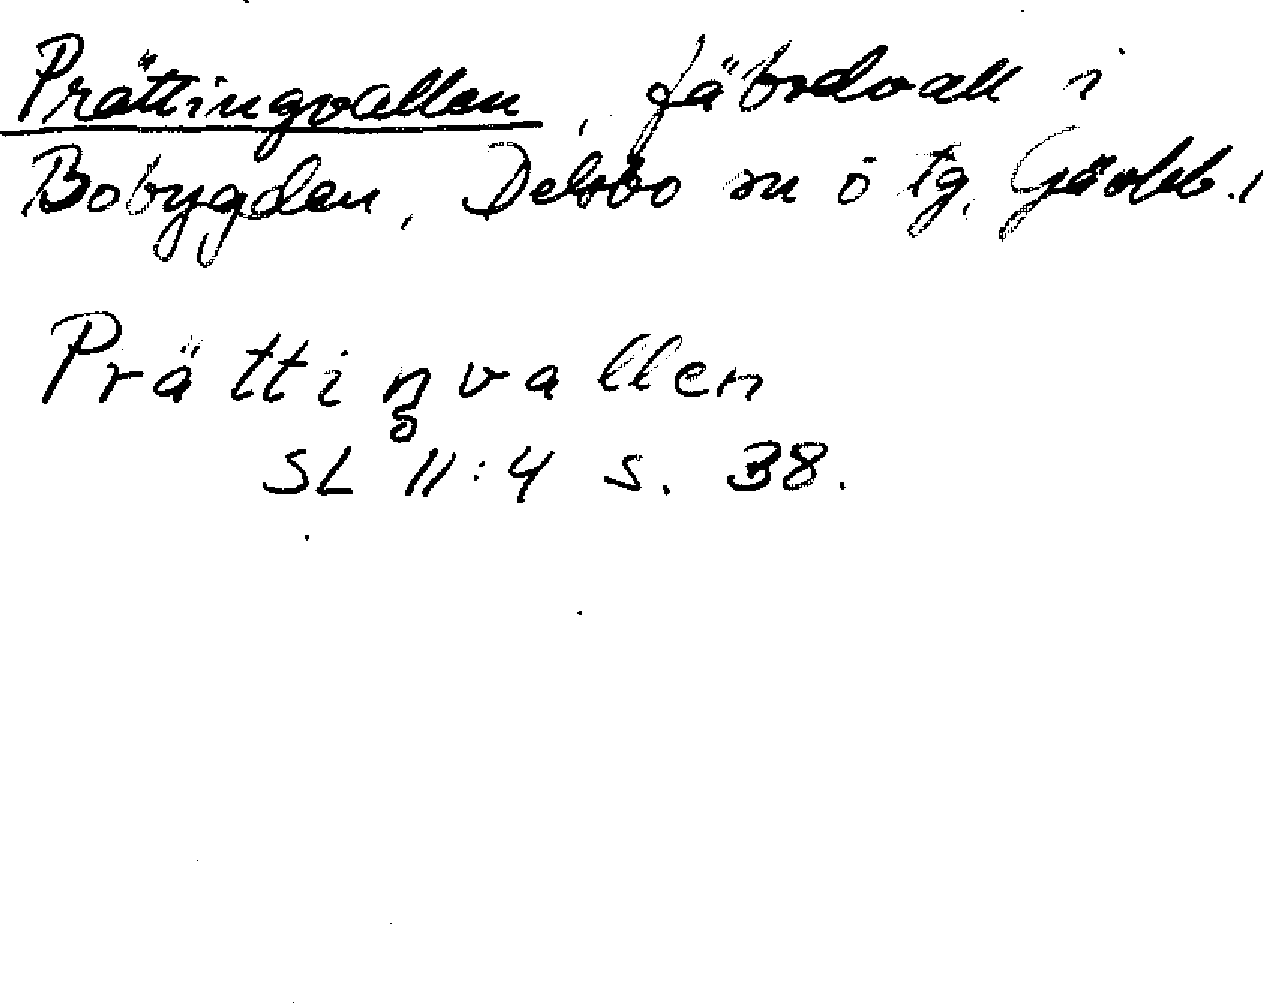 Prättingvallen, fäbodvall i
Bobygden, Delsbo sn o tg, Gävleb. l
Prättingvallen
SL 11:4 s. 38.